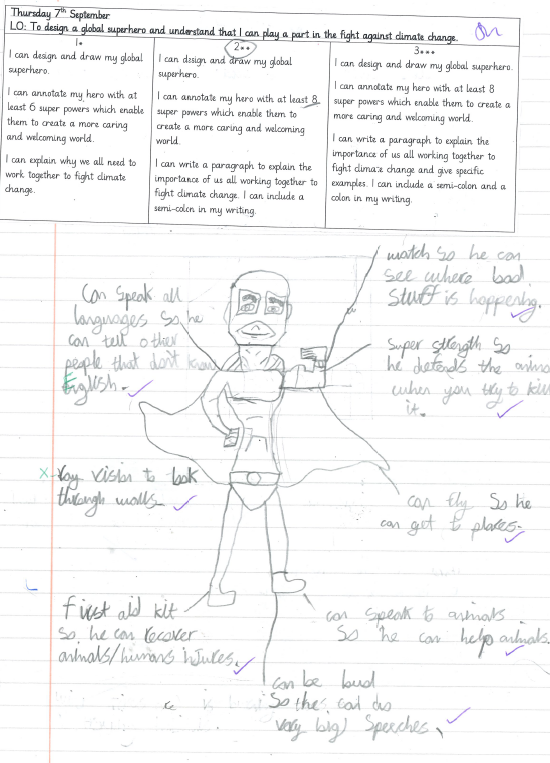 Thursday 7th September
LO: To design a global superhero and understand that I can play a part in the fight against climate change.
1*
I can design and draw my global
superhero.
I can annotate my hero with at
least 6 super powers which enable
them to create a more caring
and welcoming world.
I can explain why we all need to
work together to fight climate
change.
2**
I can design and draw my global
superhero.
I can annotate my hero with at least 8
super powers which enable them to
create a more caring and welcoming
world.
I can write a paragraph to explain the
importance of us all working together to
fight climate change. I can include a
semi-colon in my writing.
3***
I can design and draw my global superhero.
I can annotate my hero with at least 8
super powers which enable them to create a
more caring and welcoming world.
I can write a paragraph to explain the
importance of us all working together to
fight climate change and give specific
examples. I can include a semi-colon and a
colon in my writing.
watch so he can
see where bad
Stuff is happening.
Can speak all
languages So he
can tell other
people that don't know
English.
super strength So
he defends the
when you try to
it.
X-ray vision to look
through walls
can fly So he
can get to places.
First aid kit
So, he can recover
animals/humans injures.
can speak to animals
So he can help animals.
can be loud
So the can do
very big) Speeches.